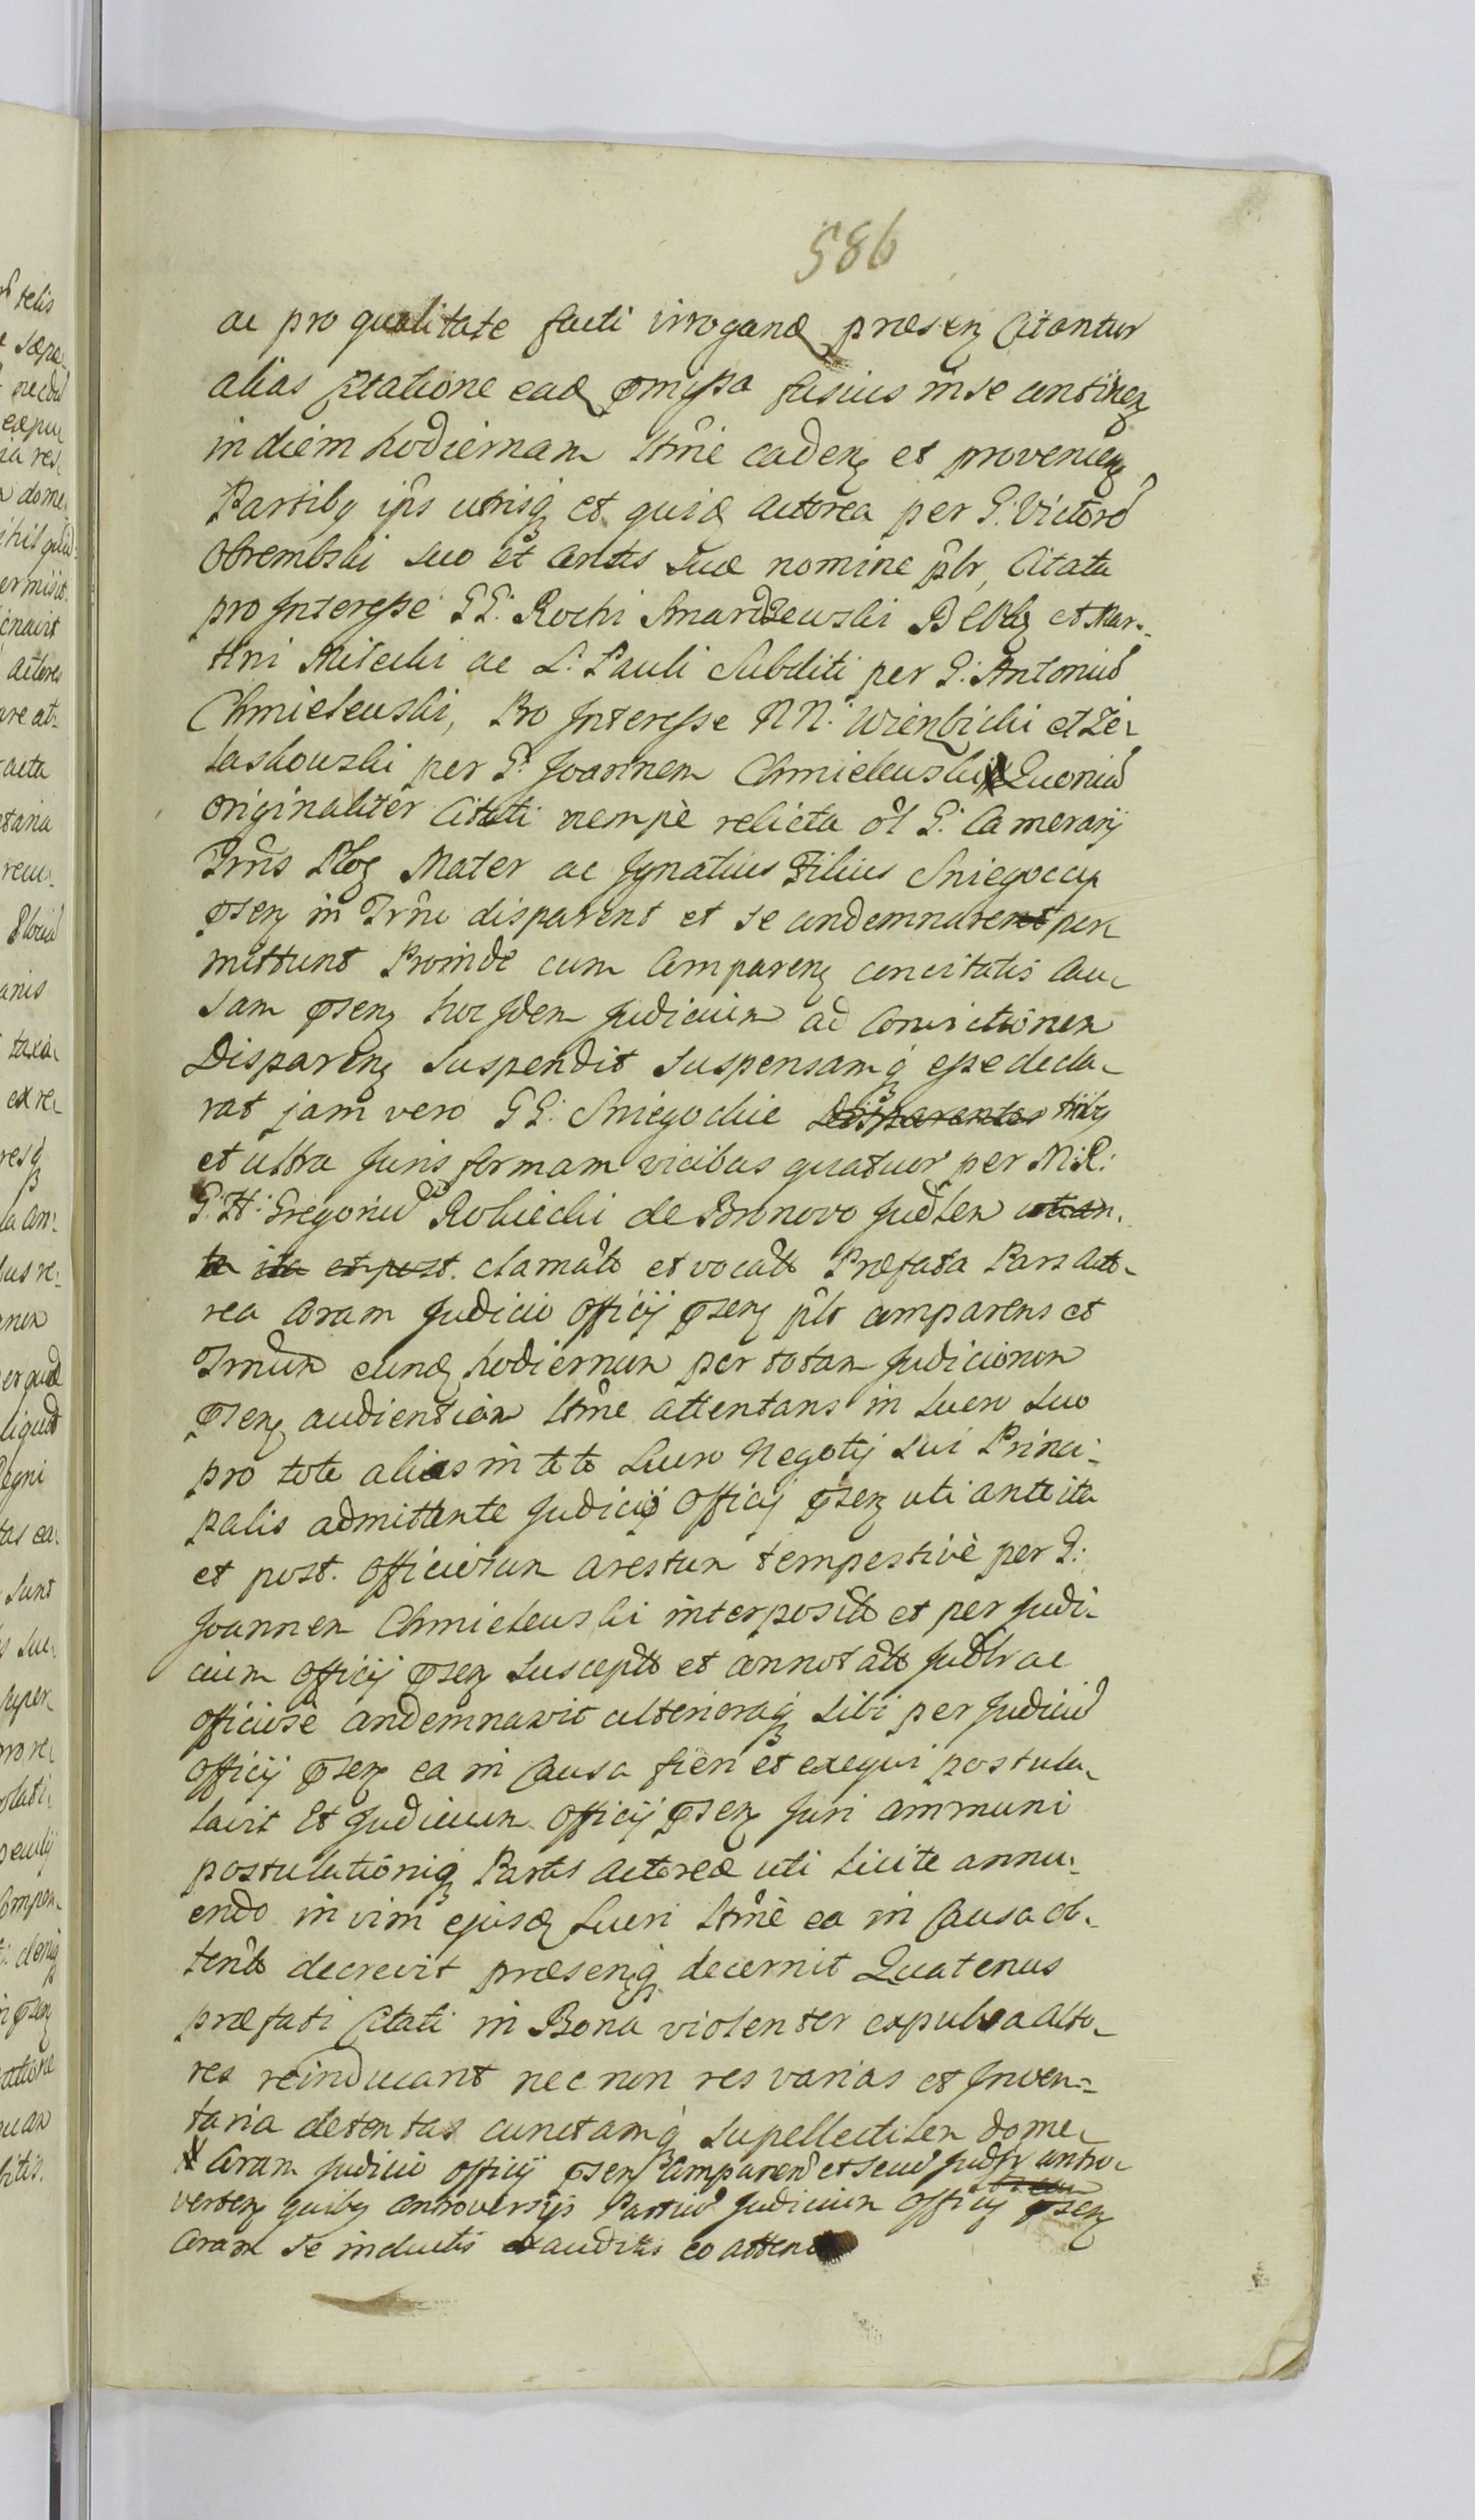 586
ac pro qualitate facti irrogand præsen Citantur
alias Citatione ead præmissa fusius in se continen
in diem hodiernam ltme caden et provenien
Partibq ips utrisq et quid Actorea per G: Victore
Obrembski suo et Contis suæ nomine plr, Citata
pro Interesse GG: Rochi Smardzewski B et Mar-
tini Milecki ac L: Pauli Subditi per G: Antoniu
Chmielewski, Pro Interesse NN: Wierzbicki et Że-
laskowski per G: Joannem Chmielewski X Quoniu
originaliter Citati nempè relicta ol G: Camerarij
Trris Plo Mater ac Ignatius Filius Sniegoccy
psen in Trno disparent et se condemnare per
mittunt Proinde cum Comparen concitatis Cau-
sam psen hoc Idem Judicium ad Convictionem
Disparen suspendit suspensamq esse decla-
rat jam vero GG: Sniegockie Disparentes tribq
et ultra Juris formam vicibus quatuor per M:R:
G: H: Gregoriu Robiecki de Bronovo Judlem uti an-
te ita et post. clamatt et vocatt Præfata Pars Acto-
rea Coram Judicio Officij psen plr comparens et
Trnum eund hodiernum per totam Judiciorum
psen audientiam ltme attentans in lucro suo
pro toto alias in toto Lucro Negotij sui Princi-
palis admittente Judicio Officij psen uti ante ita
et post. Officiosum arestum tempestivè per G:
Joannem Chmielewski interpositt et per Judi-
cium Officij psen susceptt et connotatt Judlr ac
Officiose condemnavit ulterioraq sibi per Judiciu
Officij psen ea in Causa fieri et exequi postula-
lavit Et Judicium Officij psen Juri communi
postulationiq Partis Actoreæ uti licite annu-
endo in vim ejusd Lucri ltmè ea in Causa ob-
tentt decrevit præsenq decernit Quatenus
præfati Citati in Bona violenter expulsa Acto-
res reinducant nec non res varias et Inven-
taria detentas cunctamq supellectilem dome-
X Coram Judicio Officij psen Comparen et secu Judlr contro-
verten quibq Controversijs Partiu Judicium Officij psen
Coram se inductis exauditis eo atten